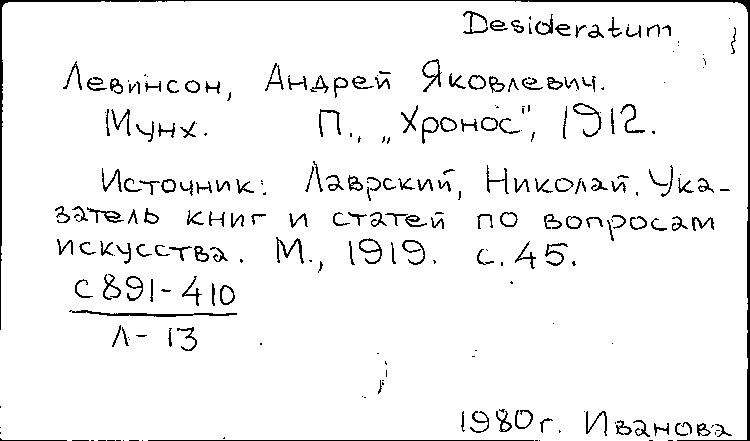 Desideratum
Левинсон, Андрей Яковлевич.
Мунх. П., „Хронос", 1912.
Источник: Лаврский, Николай. Ука-
затель книг и статей по вопросам
искусства. М., 1919. с. 45.
с 891-410
Л-13
1980 г. Иванова